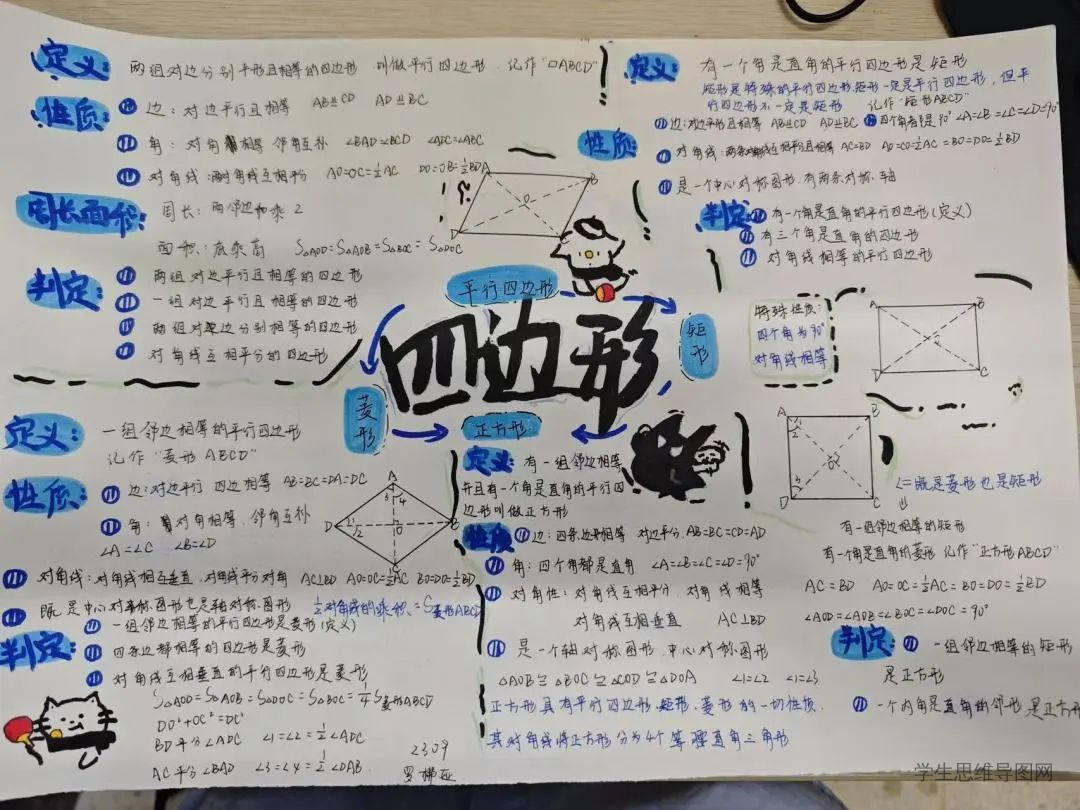 定义:
两组对边分别平行且相等的四边形 叫做平行四边形. 记作"▱ABCD"
性质:
边: 对边平行且相等 AB≌CD AD≌BC
角: 对角相等 邻角互补 ∠BAD=∠BCD ∠ADC=∠ABC
对角线: 对角线互相平分 AO=OC=½AC DO=OB=½BD
周长面积:
周长: 两邻边和乘2
面积: 底乘高 S△AOD=S△AOB=S△BOC=S△DOC
判定:
两组对边平行且相等的四边形
一组对边平行且相等的四边形
两组对边分别相等的四边形
对角线互相平分的四边形
A
B
O
D
平行四边形
四边形
矩形
菱形
正方形
定义:
有一个角是直角的平行四边形是矩形
矩形是特殊的平行四边形.矩形一定是平行四边形, 但平
行四边形不一定是矩形 记作"矩形ABCD"
性质:
边: 对边平形且相等 AB≌CD AD≌BC 四个角都是90° ∠A=∠B=∠C=∠D=90°
对角线: 两条对角线互相平分且相等 AC=BD AO=CO=½AC=BO=DO=½BD
是一个中心对称图形.有两条对称轴
判定:
有一个角是直角的平行四边形(定义)
有三个角是直角的四边形
对角线相等的平行四边形
特殊性质:
四个角为90°
对角线相等
A
B
D
C
定义:
一组邻边相等的平行四边形
记作"菱形ABCD"
性质:
边: 对边平行 四边相等 AB=BC=DA=DC
角: 对角相等, 邻角互补
∠A=∠C ∠B=∠D
对角线: 对角线相互垂直, 对角线平分对角 AC⊥BD AO=OC=½AC BO=DO=½BD
既是中心对称图形也是轴对称图形 ½对角线的乘积=S菱形ABCD
A
3 4
D 1 2 O B
C
判定:
一组邻边相等的平行四边形是菱形(定义)
四条边都相等的四边形是菱形
对角线互相垂直的平行四边形是菱形
S△AOD=S△AOB=S△DOC=S△BOC=¼S菱形ABCD
DO²+OC²=DC²
BD平分∠ADC ∠1=∠2=½∠ADC
AC平分∠BAD ∠3=∠4=½∠DAB
2309
定义:
有一组邻边相等
并且有一个角是直角的平行四
边形叫做正方形
性质
边: 四条边相等 对边平分.AB=BC=CD=AD
角: 四个角都是直角 ∠A=∠B=∠C=∠D=90°
对角性: 对角线互相平分, 对角线相等
对角线互相垂直 AC⊥BD
是一个轴对称图形.中心对称图形
△AOB≌△BOC≌△COD≌△DOA ∠1=∠2 ∠1=∠3
正方形具有平行四边形.矩形.菱形的一切性质.
其对角线将正方形分为4个等腰直角三角形
A
B
1
2
O
3
D
C
既是菱形也是矩形
有一组邻边相等的矩形
有一个角是直角的菱形 记作"正方形ABCD"
AC=BD AO=OC=½AC=BO=DO=½BD
∠AOD=∠AOB=∠BOC=∠DOC=90°
判定:
一组邻边相等的矩形
是正方形
一个内角是直角的邻形是正方形
学生思维导图网